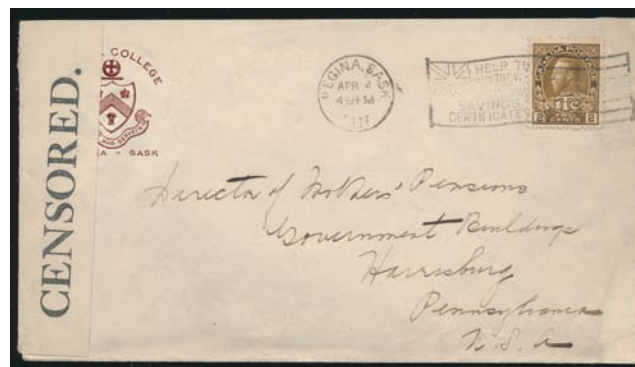 CENSORED.
COLLEGE
A - SASK
REGINA, SASK
APR 4
PM
HELP TO
SAVINGS
CERTIFICATE
CANADA POSTAGE
1Tc
2 2
Director of Mothers' Pensions
Government Buildings
Harrisburg
Pennsylvania
U.S.A